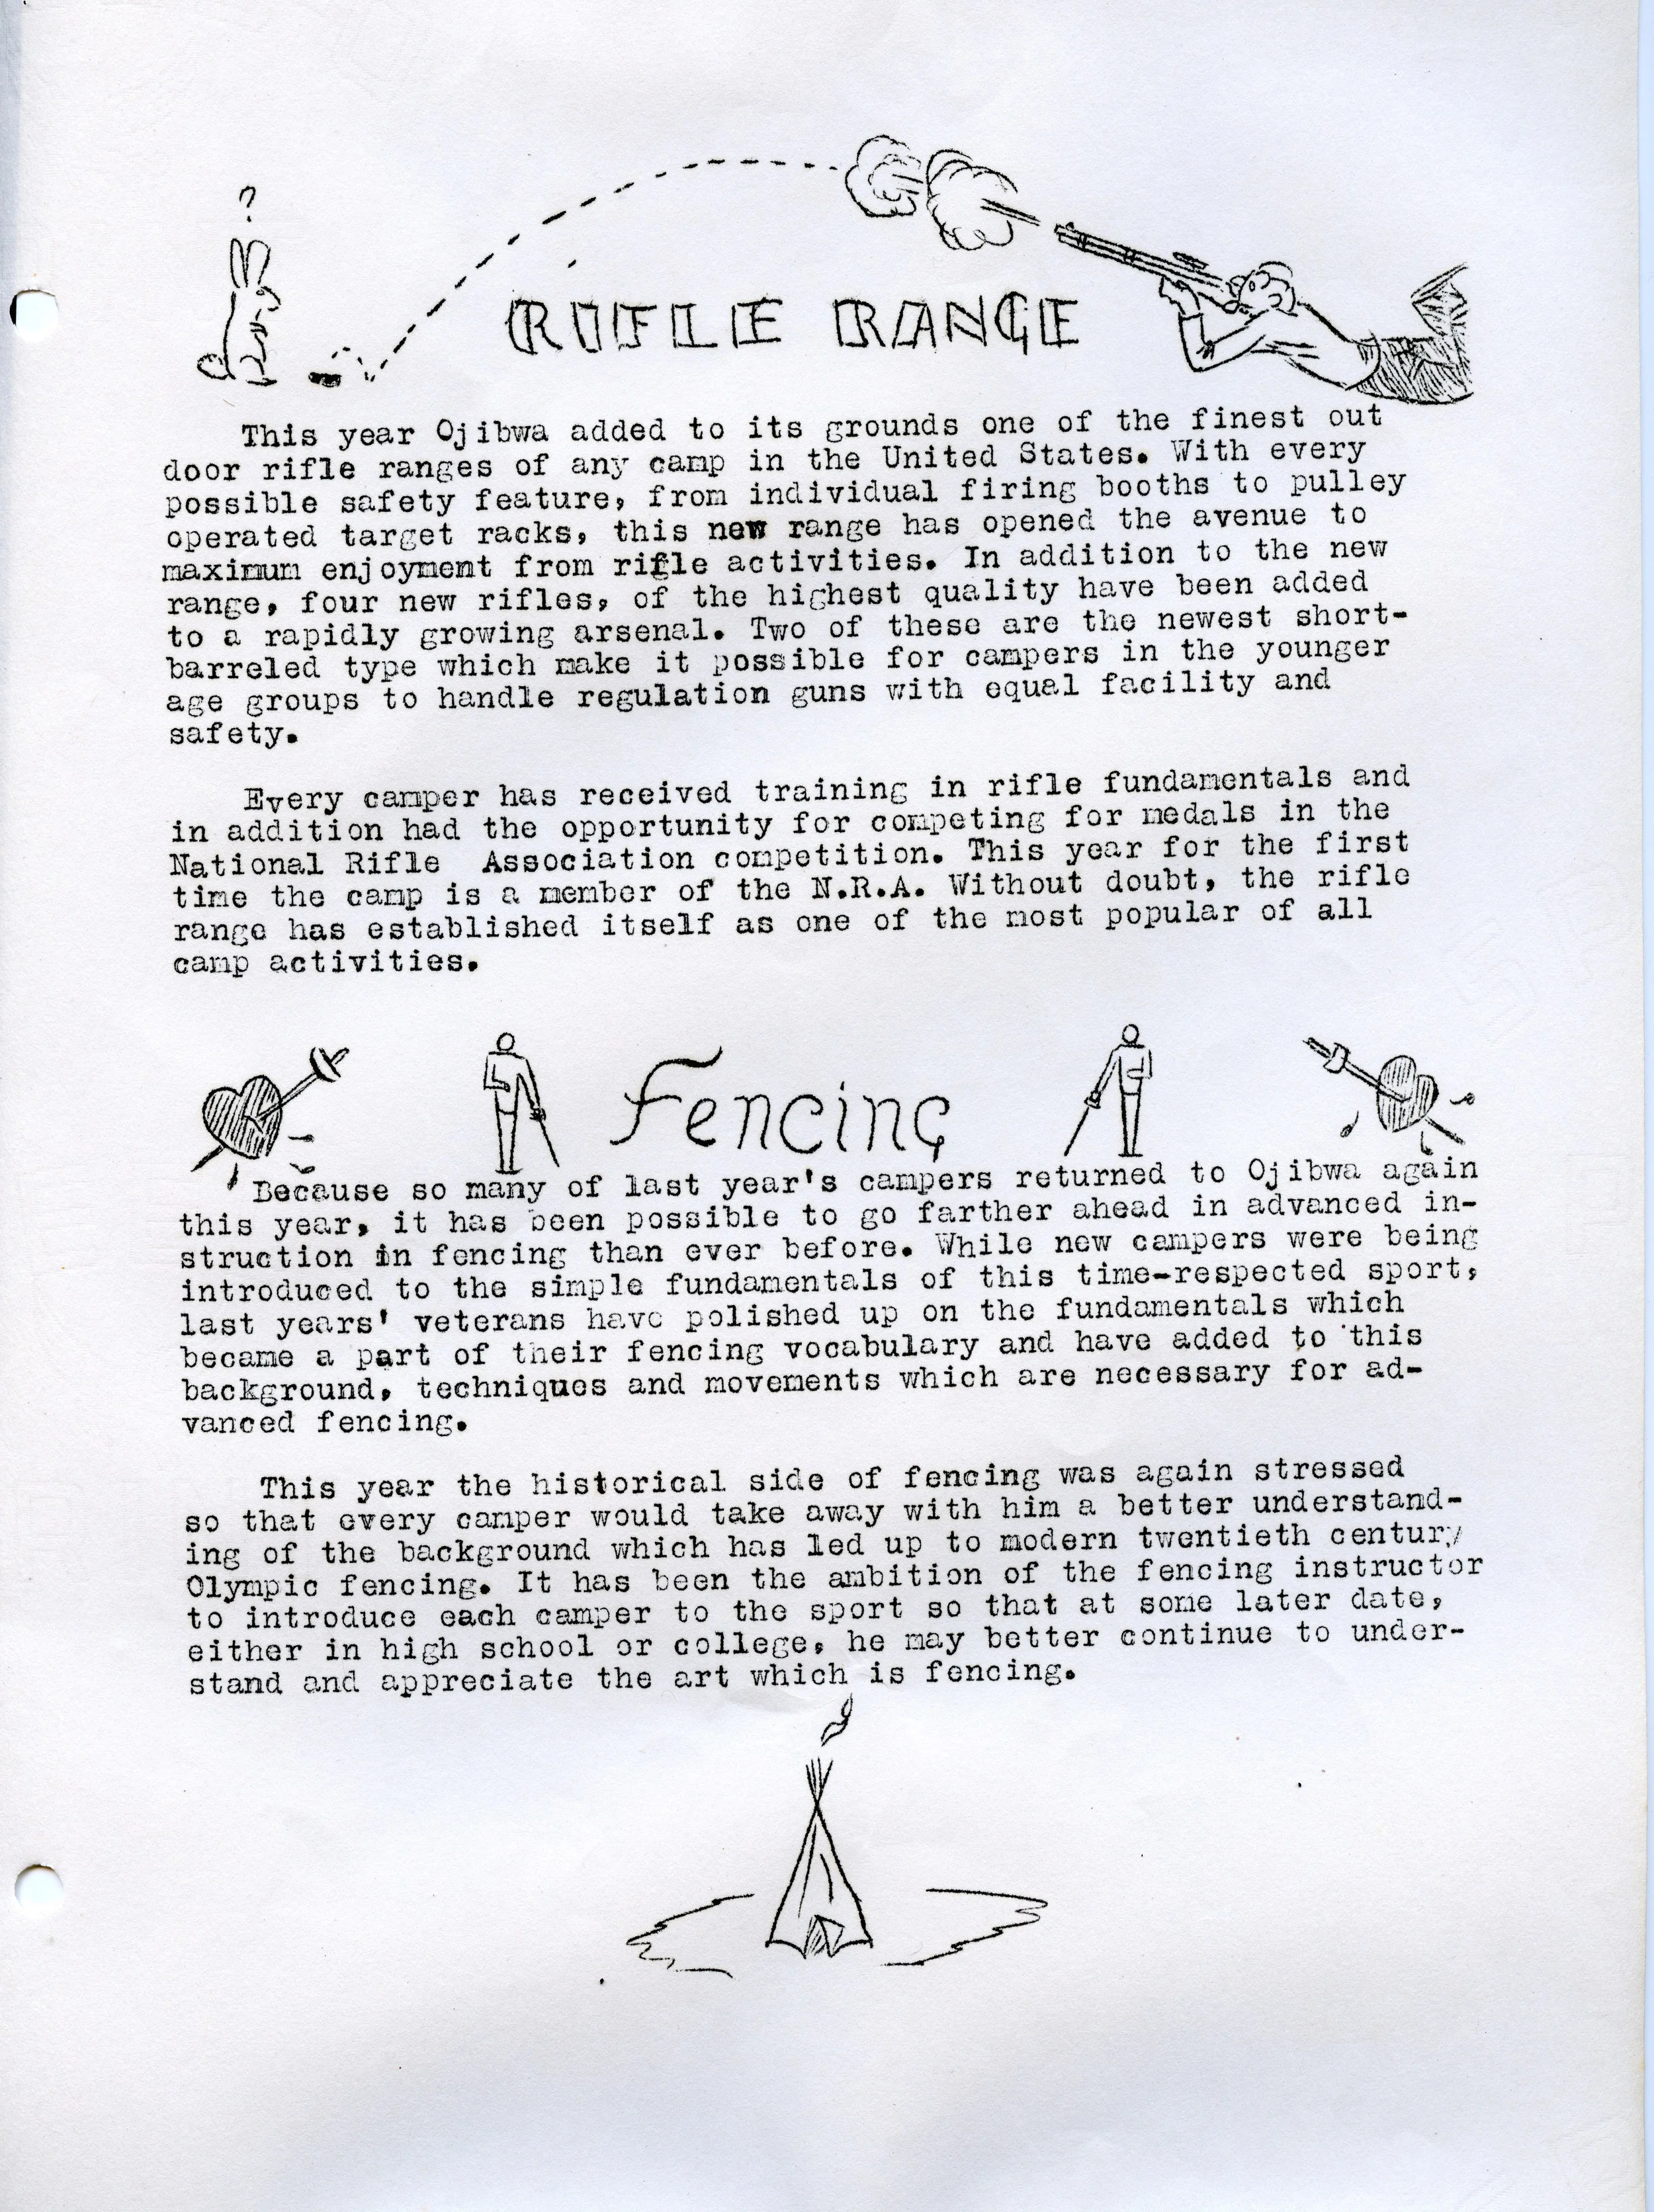 ?
RIFLE RANGE
This year Ojibwa added to its grounds one of the finest out
door rifle ranges of any camp in the United States. With every
possible safety feature, from individual firing booths to pulley
operated target racks, this new range has opened the avenue to
maximum enjoyment from rifle activities. In addition to the new
range, four new rifles, of the highest quality have been added
to a rapidly growing arsenal. Two of these are the newest short-
barreled type which make it possible for campers in the younger
age groups to handle regulation guns with equal facility and
safety.
Every camper has received training in rifle fundamentals and
in addition had the opportunity for competing for medals in the
National Rifle Association competition. This year for the first
time the camp is a member of the N.R.A. Without doubt, the rifle
range has established itself as one of the most popular of all
camp activities.
Fencing
Because so many of last year's campers returned to Ojibwa again
this year, it has been possible to go farther ahead in advanced in-
struction in fencing than ever before. While new campers were being
introduced to the simple fundamentals of this time-respected sport,
last years' veterans have polished up on the fundamentals which
became a part of their fencing vocabulary and have added to this
background, techniques and movements which are necessary for ad-
vanced fencing.
This year the historical side of fencing was again stressed
so that every camper would take away with him a better understand-
ing of the background which has led up to modern twentieth century
Olympic fencing. It has been the ambition of the fencing instructor
to introduce each camper to the sport so that at some later date,
either in high school or college, he may better continue to under-
stand and appreciate the art which is fencing.